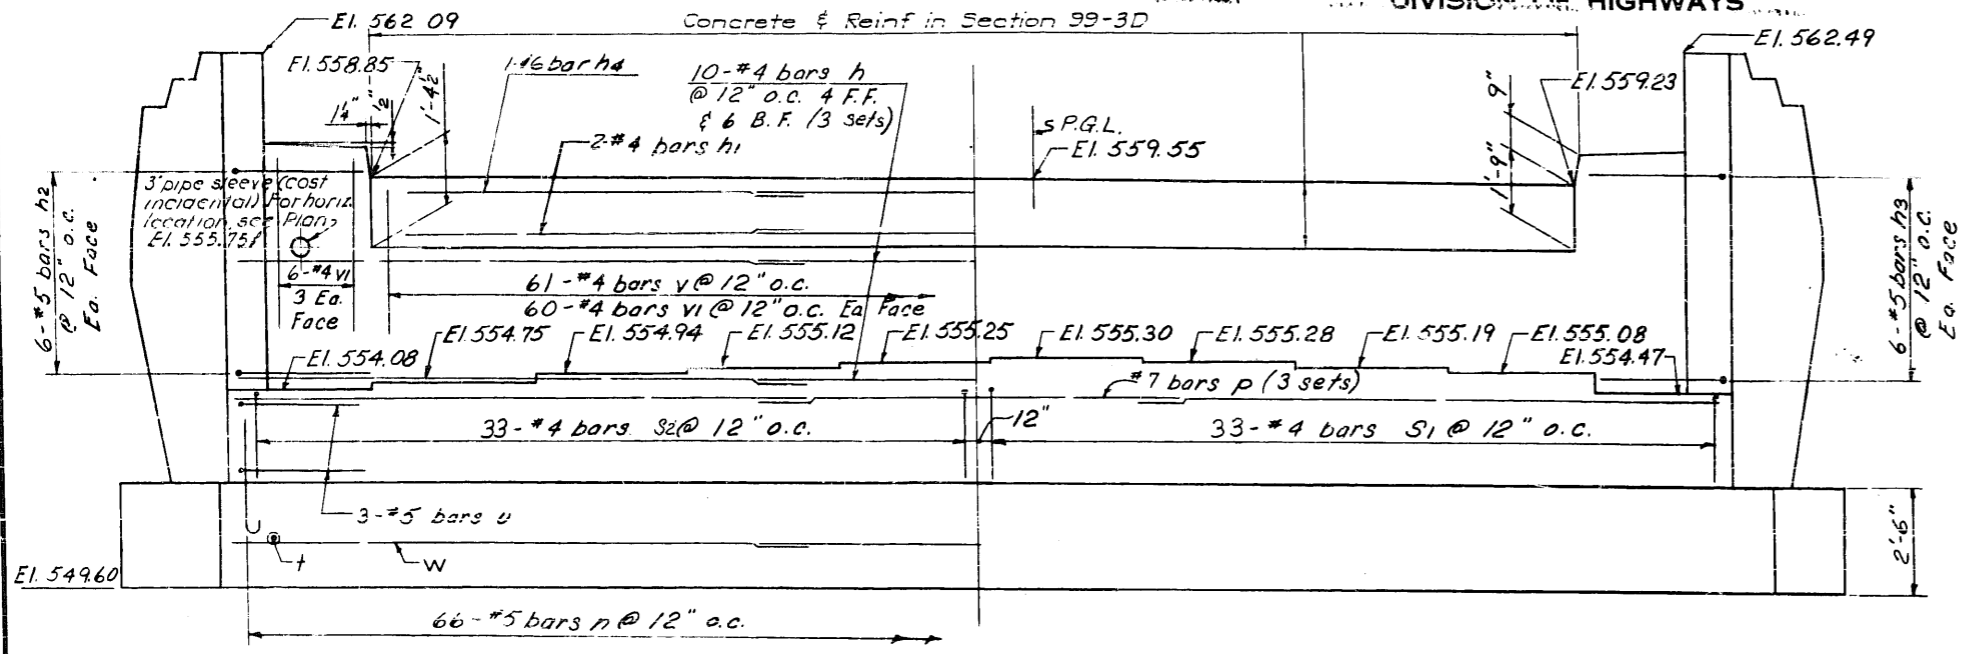 DIVISION OF HIGHWAYS
El. 562 09
Concrete & Reinf in Section 99-3D
El. 562.49
El. 558.85
1-#6 bar h4
10-#4 bars h
@ 12" o.c. 4 F.F.
& 6 B.F. (3 sets)
El. 559.23
1¼"
½"
1'-4½"
9"
1'-9"
2-#4 bars h1
P.G.L.
El. 559.55
3" pipe sleeve (cost
incidental) For horiz.
location, see Plan
El. 555.75±
6-#5 bars h2
@ 12" o.c.
Ea. Face
6-#5 bars h3
@ 12" o.c.
Ea. Face
6-#4 v1
3 Ea.
Face
61-#4 bars v @ 12" o.c.
60-#4 bars v1 @ 12" o.c. Ea Face
El. 554.08
El. 554.75
El. 554.94
El. 555.12
El. 555.25
El. 555.30
El. 555.28
El. 555.19
El. 555.08
El. 554.47
#7 bars p (3 sets)
33-#4 bars S2 @ 12" o.c.
12"
33-#4 bars S1 @ 12" o.c.
3-#5 bars u
t
w
El. 549.60
2'-6"
66-#5 bars n @ 12" o.c.